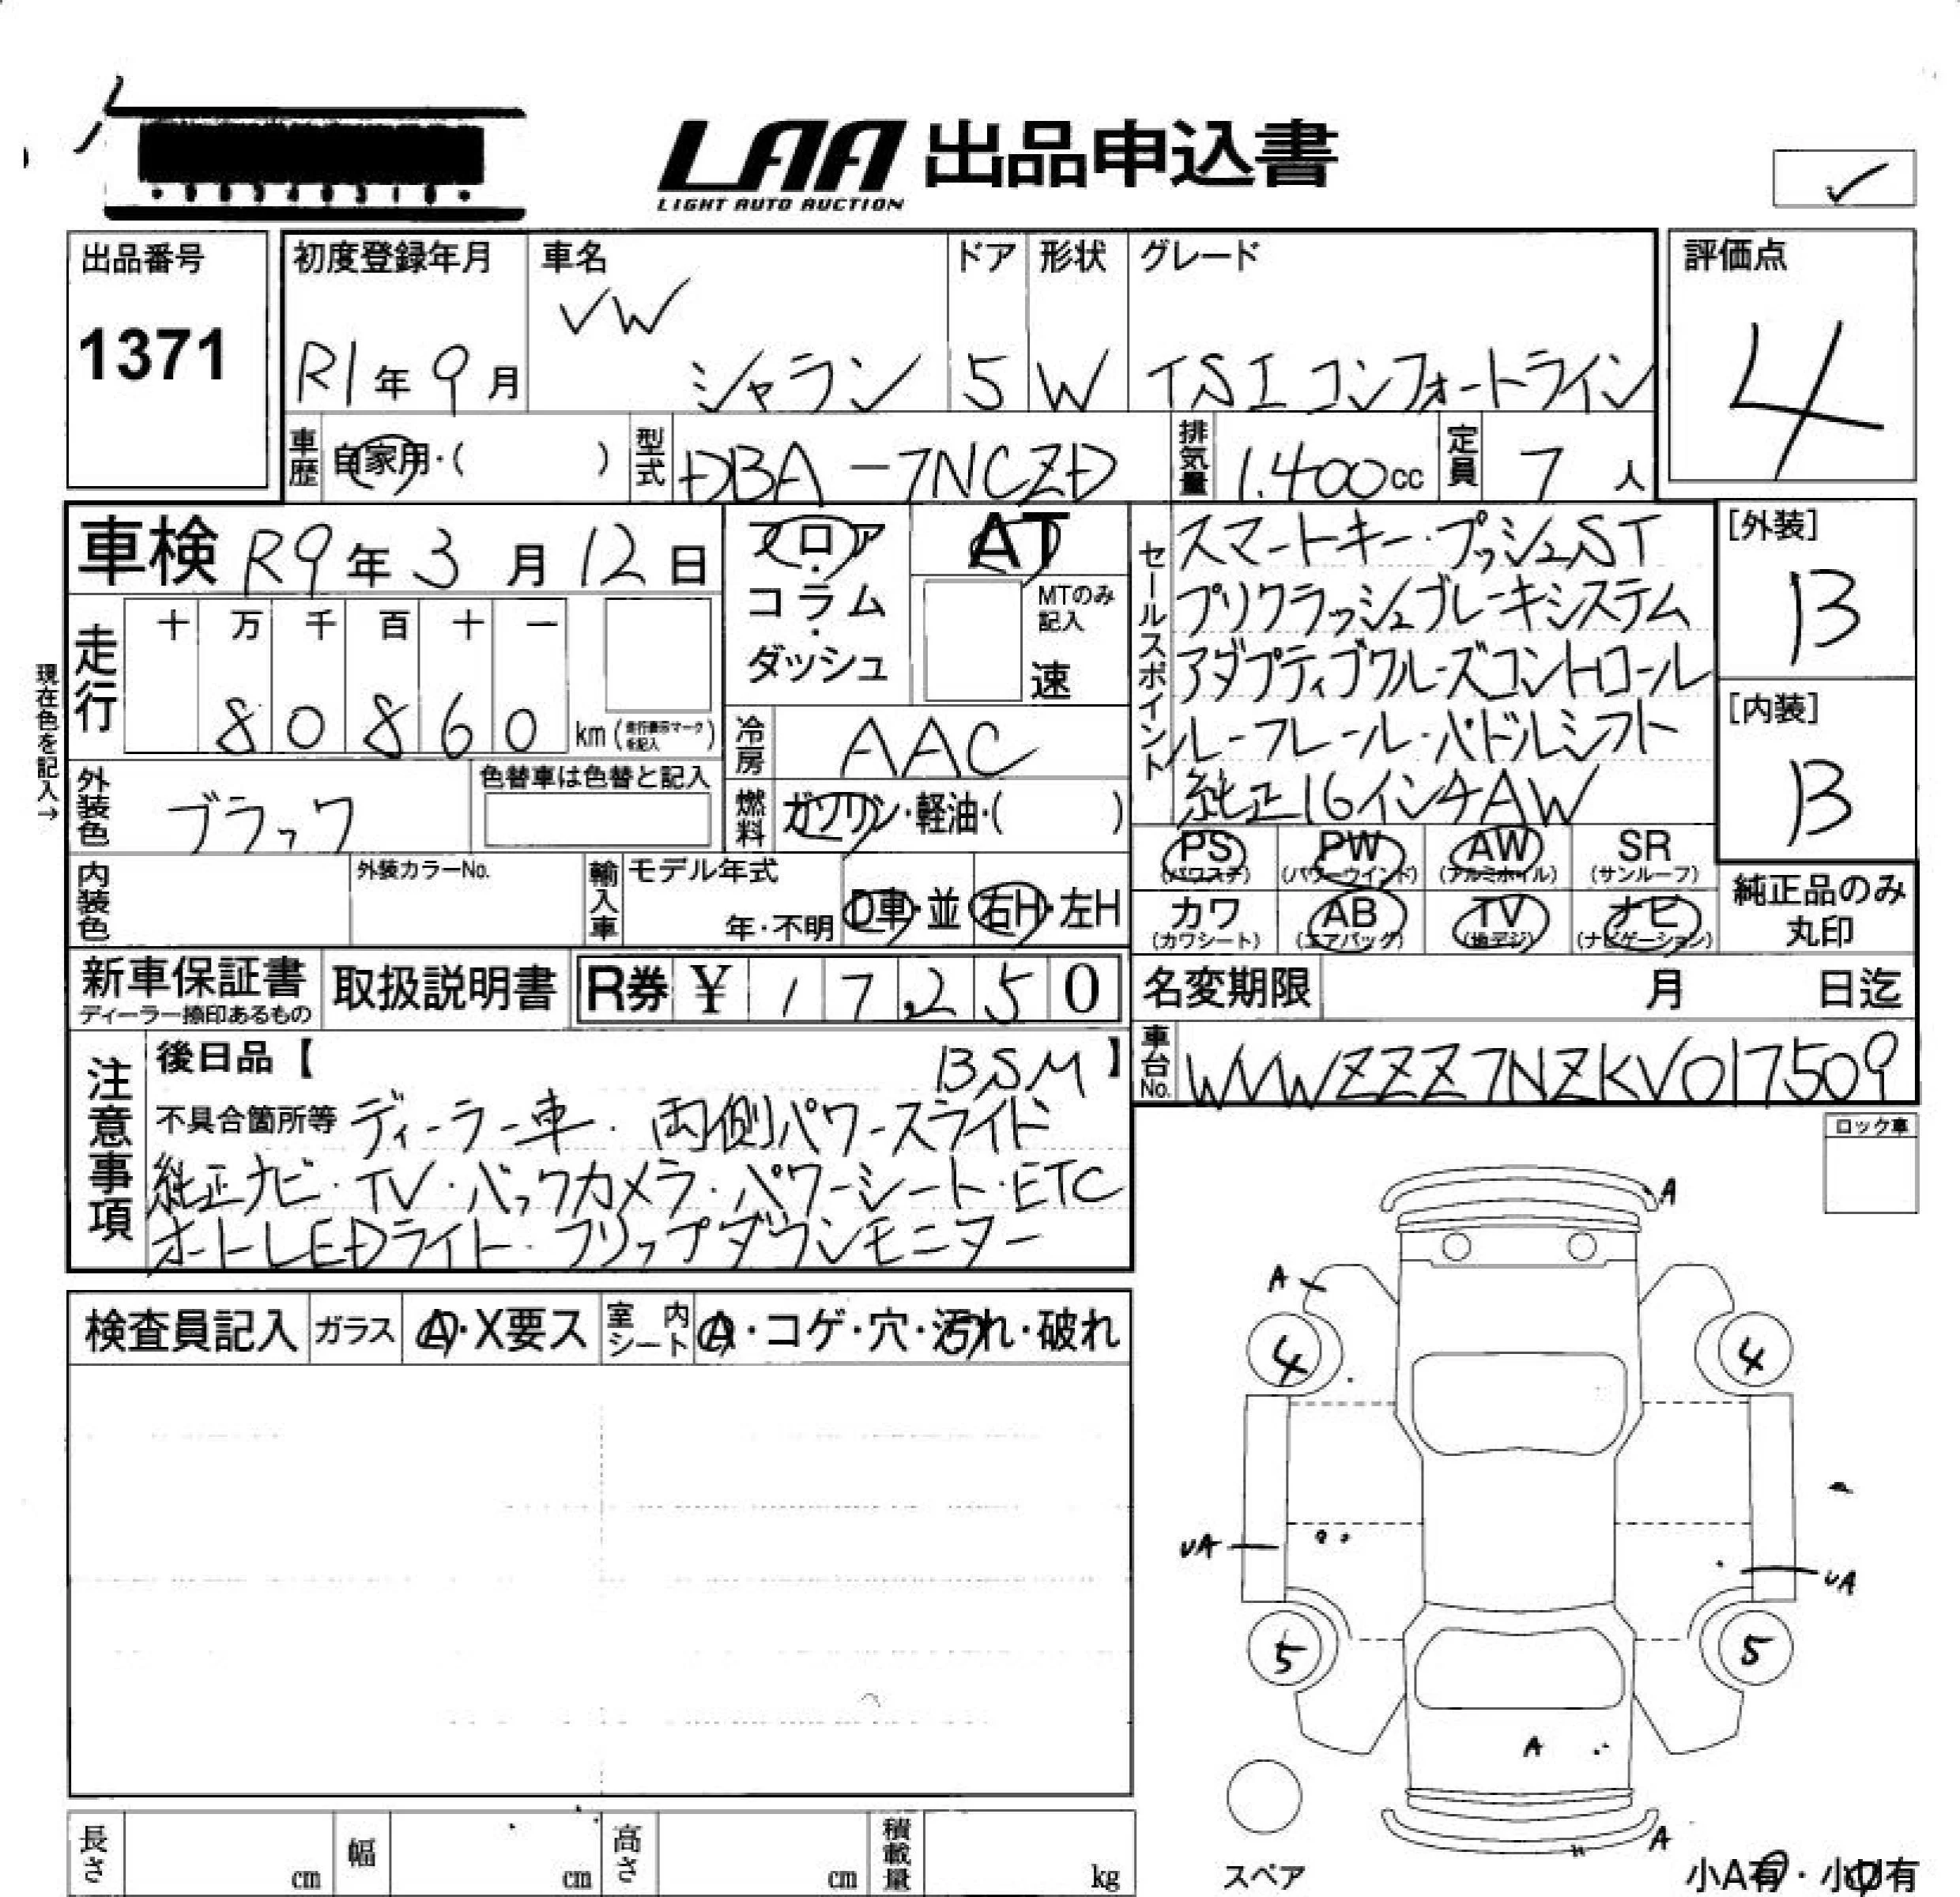 LAA 出品申込書
LIGHT AUTO AUCTION
出品番号
1371
初度登録年月
R1年9月
車名
VW
シャラン
ドア
5
形状
W
グレード
TSIコンフォートライン
評価点
4
車歴
自家用・( )
型式
DBA-7NCZD
排気量
1,400cc
定員
7人
車検 R9年3月12日
フロア・コラム・ダッシュ
AT
MTのみ記入
速
セールスポイント
スマートキー・プッシュST
プリクラッシュブレーキシステム
アダプティブクルーズコントロール
ルーフレール・パドルシフト
純正16インチAW
[外装]
B
[内装]
B
現在色を記入→
走行
十 万 千 百 十 一
8 0 8 6 0 km (走行表示マークを記入)
冷房
AAC
外装色
ブラック
色替車は色替と記入
燃料
ガソリン・軽油・( )
内装色
外装カラーNo.
輸入車
モデル年式
年・不明
D車・並
右H・左H
PS (パワステ)
PW (パワーウインド)
AW (アルミホイル)
SR (サンルーフ)
カワ (カワシート)
AB (エアバッグ)
TV (地デジ)
ナビ (ナビゲーション)
純正品のみ丸印
新車保証書
ディーラー捺印あるもの
取扱説明書
R券 ¥ 17,250
名変期限 月 日迄
車台No. WVWZZZ7NZKV017509
注意事項
後日品【 BSM】
不具合箇所等 ディーラー車・両側パワースライド
純正ナビ・TV・バックカメラ・パワーシート・ETC
オートLEDライト・フリップダウンモニター
ロック車
検査員記入
ガラス A・X要ス
室内シート A・コゲ・穴・汚れ・破れ
A
A
4
4
UA
UA
5
5
A
A
スペア
小A有・小U有
長さ cm
幅 cm
高さ cm
積載量 kg